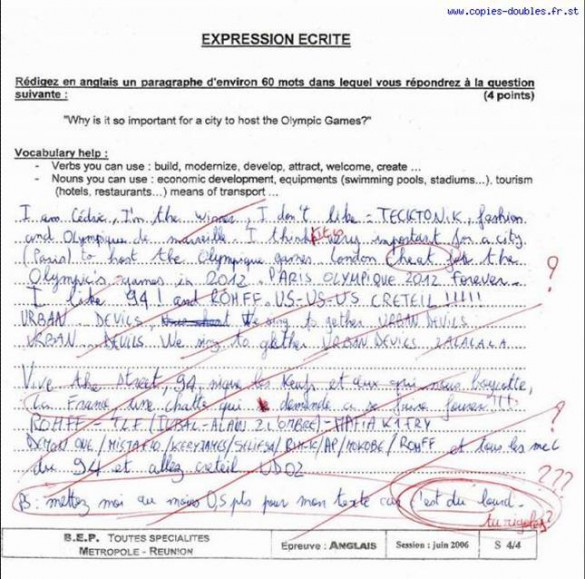 www.copies-doubles.fr.st
EXPRESSION ECRITE
Rédigez en anglais un paragraphe d'environ 60 mots dans lequel vous répondrez à la question
suivante : (4 points)
"Why is it so important for a city to host the Olympic Games?"
Vocabulary help :
- Verbs you can use : build, modernize, develop, attract, welcome, create ...
- Nouns you can use : economic development, equipments (swimming pools, stadiums...), tourism
(hotels, restaurants...) means of transport ...
I am Cédric, I'm the winner, I don't like = TECKTONIK, fashion
and Olympique de marseille. I think it is very important for a city
(Paris) to host the Olympique games. london cheat for the
Olympic's games in 2012. PARIS OLYMPIQUE 2012 forever... ?
I like 94! and ROHFF. US-US-US CRETEIL !!!!!
URBAN DEVILS, We sing to gether URBAN DEVILS
URBAN DEVILS We sing to gether URBAN DEVILS LALALALA
Vive the street, 94, nique les keufs et eux qui nous
La France une chatte qui demande a se faire !!!!
ROHFF - TLF (IKBAL-ALAIN 2 L'OMBRE) - MAFIA K1FRY
DEMON ONE / MISTA FLO / KERY JAMES / SELIFSA / RIMK / AP / MOKOBE / ROHFF et tous les mec ?
du 94 et allez creteil UD02 ???
PS: mettez moi au moins 0,5 pts pour mon texte car c'est du lourd.
tu rigoles?
B.E.P. TOUTES SPECIALITES
METROPOLE - REUNION
Epreuve : ANGLAIS
Session : juin 2006
S 4/4